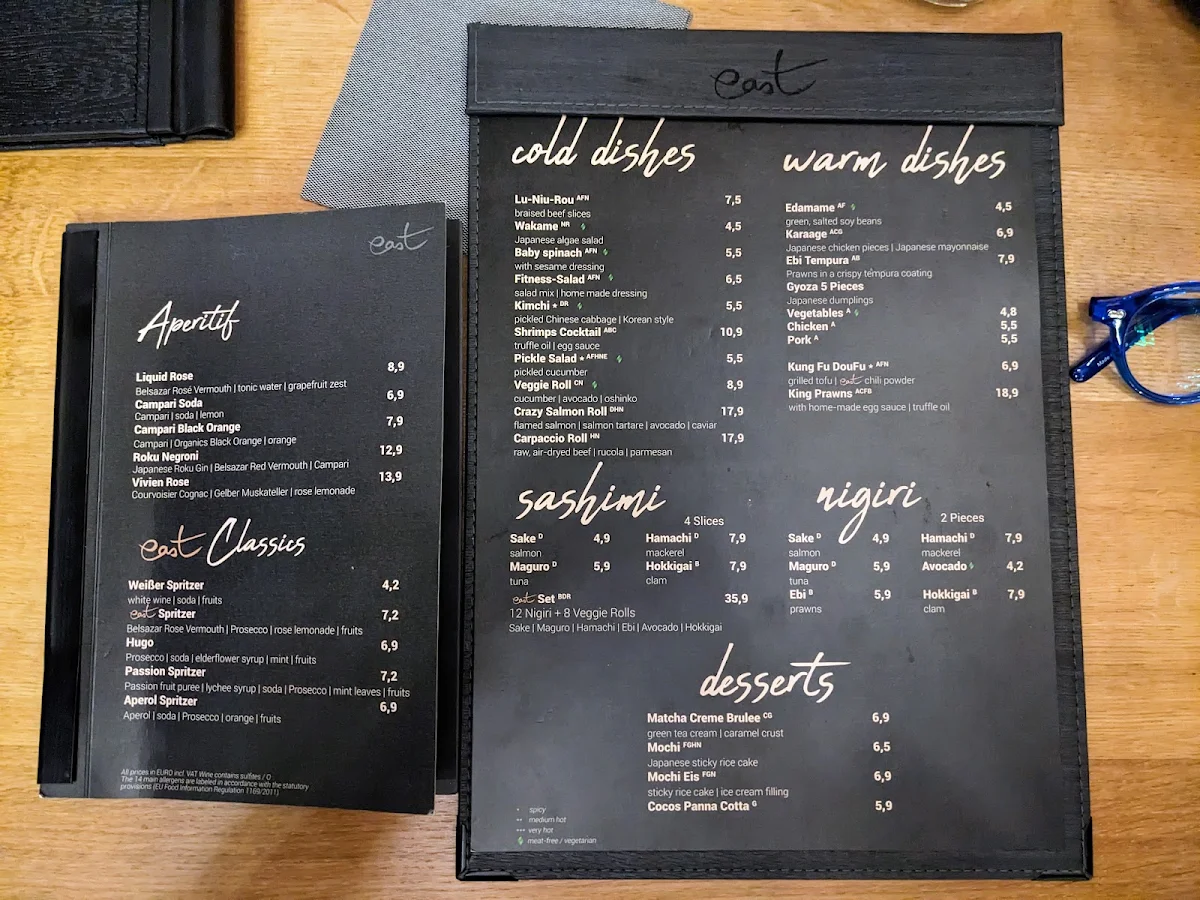 east
Aperitif
Liquid Rose 8,9
Belsazar Rosé Vermouth | tonic water | grapefruit zest
Campari Soda 6,9
Campari | soda | lemon
Campari Black Orange 7,9
Campari | Organics Black Orange | orange
Roku Negroni 12,9
Japanese Roku Gin | Belsazar Red Vermouth | Campari
Vivien Rose 13,9
Courvoisier Cognac | Gelber Muskateller | rose lemonade
east Classics
Weißer Spritzer 4,2
white wine | soda | fruits
east Spritzer 7,2
Belsazar Rose Vermouth | Prosecco | rose lemonade | fruits
Hugo 6,9
Prosecco | soda | elderflower syrup | mint | fruits
Passion Spritzer 7,2
Passion fruit puree | lychee syrup | soda | Prosecco | mint leaves | fruits
Aperol Spritzer 6,9
Aperol | soda | Prosecco | orange | fruits
All prices in EURO incl. VAT Wine contains sulfites / O
The 14 main allergens are labeled in accordance with the statutory
provisions (EU Food Information Regulation 1169/2011)
east
cold dishes
Lu-Niu-Rou AFN 7,5
braised beef slices
Wakame NR 4,5
Japanese algae salad
Baby spinach AFN 5,5
with sesame dressing
Fitness-Salad AFN 6,5
salad mix | home made dressing
Kimchi * DR 5,5
pickled Chinese cabbage | Korean style
Shrimps Cocktail ABC 10,9
truffle oil | egg sauce
Pickle Salad * AFHNE 5,5
pickled cucumber
Veggie Roll CN 8,9
cucumber | avocado | oshinko
Crazy Salmon Roll DHN 17,9
flamed salmon | salmon tartare | avocado | caviar
Carpaccio Roll HN 17,9
raw, air-dryed beef | rucola | parmesan
warm dishes
Edamame AF 4,5
green, salted soy beans
Karaage ACG 6,9
Japanese chicken pieces | Japanese mayonnaise
Ebi Tempura AB 7,9
Prawns in a crispy tempura coating
Gyoza 5 Pieces
Japanese dumplings
Vegetables A 4,8
Chicken A 5,5
Pork A 5,5
Kung Fu DouFu * AFN 6,9
grilled tofu | east chili powder
King Prawns ACFB 18,9
with home-made egg sauce | truffle oil
sashimi
4 Slices
Sake D 4,9 Hamachi D 7,9
salmon mackerel
Maguro D 5,9 Hokkigai B 7,9
tuna clam
east Set BDR 35,9
12 Nigiri + 8 Veggie Rolls
Sake | Maguro | Hamachi | Ebi | Avocado | Hokkigai
nigiri
2 Pieces
Sake D 4,9 Hamachi D 7,9
salmon mackerel
Maguro D 5,9 Avocado 4,2
tuna
Ebi B 5,9 Hokkigai B 7,9
prawns clam
desserts
Matcha Creme Brulee CG 6,9
green tea cream | caramel crust
Mochi FGHN 6,5
Japanese sticky rice cake
Mochi Eis FGN 6,9
sticky rice cake | ice cream filling
Cocos Panna Cotta G 5,9
* spicy
** medium hot
*** very hot
meat-free / vegetarian